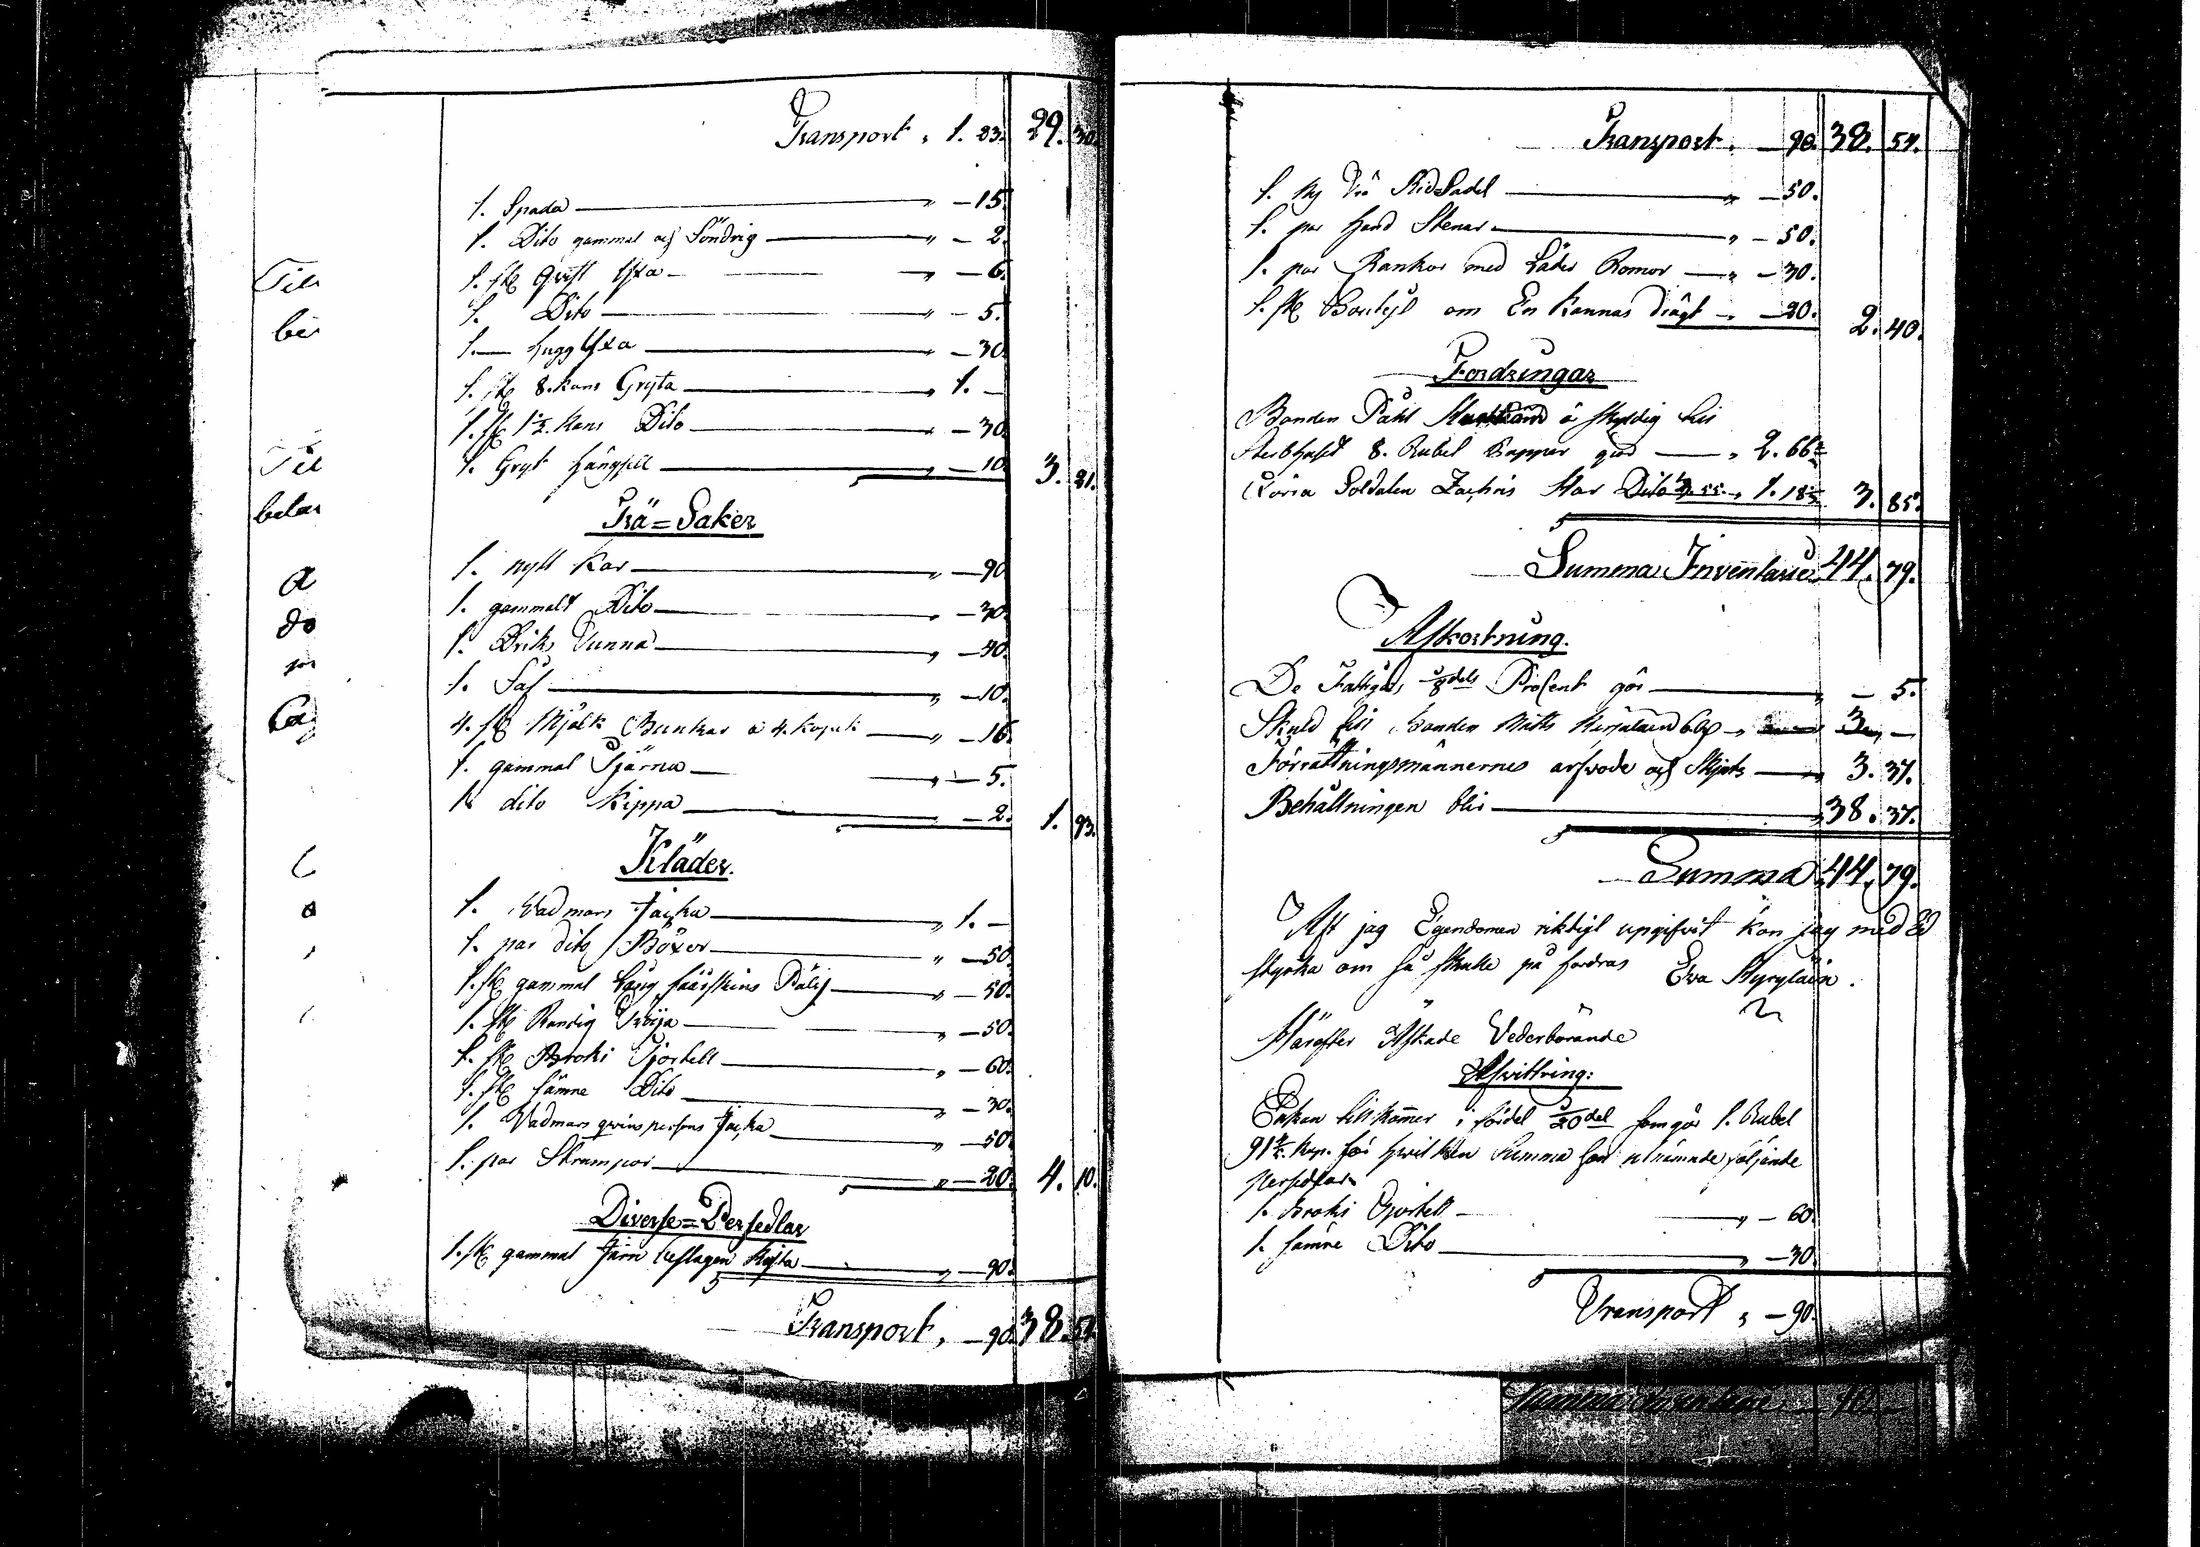 Transport „ 1. 23. 29. 30.
1. Spada „ — 15.
1. Dito gammal och Söndrig „ — 2.
1. st. Qvist Yxa „ — 6.
1. Dito „ — 5.
1. — hugg Yxa „ — 30.
1. st. 8. kans Gryta „ 1. —
1. st. 1½ kans Dito „ — 30.
1. Gryt hängsill „ — 10. 3. 21.
Trä=Saker
1. nytt Kar „ — 90.
1. gammalt Dito „ — 30.
1. Driks Tunna „ — 40.
1. Så „ — 10.
4. st. Mjölk Bunkar a 4. Kopek „ — 16.
1. gammal Tjärna „ — 5.
1. dito Kippa „ — 2. 1. 93.
Kläder.
1. Wadmars Jacka „ 1. —
1. par dito Böxor „ — 50.
1. st. gammal Lång fårskins Päls „ — 50.
1. st. Randig Tröija „ — 50.
1. st. Broki Tjortell „ — 60.
1. st. sämre Dito „ — 30.
1. Vadmars qvinspersons Jacka „ — 50.
1. par Strumpor „ — 20. 4. 10.
Diverse=Persedlar
1. st. gammal Järn beslagen Kista „ — 90.
Transport „ — 90. 38. 57.
Til
bei
Til
betar
a
do
Transport „ — 90. 38. 54.
1. ny Trä RidSadel „ — 50.
1. par Hand Stenar „ — 50.
1. par Rankor med Läder Romor „ — 30.
1. st. Boutejl om En Kannas drägt „ — 20. 2. 40.
Fordringar
Bonden Påhl ä skyldig till
Sterbhuset 8. Rubel Papper giör „ 2. 66⅔
Förra Soldaten Zachris Dito „ 1. 18⅓ 3. 85.
Summa Inventarie 44. 79.
Afkortning.
De Fattigas ⅛dels Prosent gör „ — 5.
Skuld till bonden „ 3. —
Förrättningsmännernes arfvode och Skjuts „ 3. 37.
Behållningen blir „ 38. 37.
Summa 44. 79.
Att jag Egendomen riktigt upgifvit kan jag med Ed
styrka om så skulle på fordras Eva Kyryläin.
Härefter Äskade Vederbörande
Afvittring:
Enkan tillkommer i fördel 1/20del som gör 1. Rubel
91½ kop. för hvilken Summa hon utnämnde följande
Persedlar
1. Broki Tjortell „ — 60.
1. sämre Dito „ — 30.
Transport „ — 90.